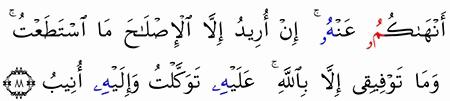 أَنْهَىٰكُمُۥ عَنْهُۥ ۚ إِنْ أُرِيدُ إِلَّا ٱلْإِصْلَـٰحَ مَا ٱسْتَطَعْتُ ۚ
وَمَا تَوْفِيقِىٓ إِلَّا بِٱللَّهِ ۚ عَلَيْهِۦ تَوَكَّلْتُ وَإِلَيْهِۦ أُنِيبُ ﴿٨٨﴾